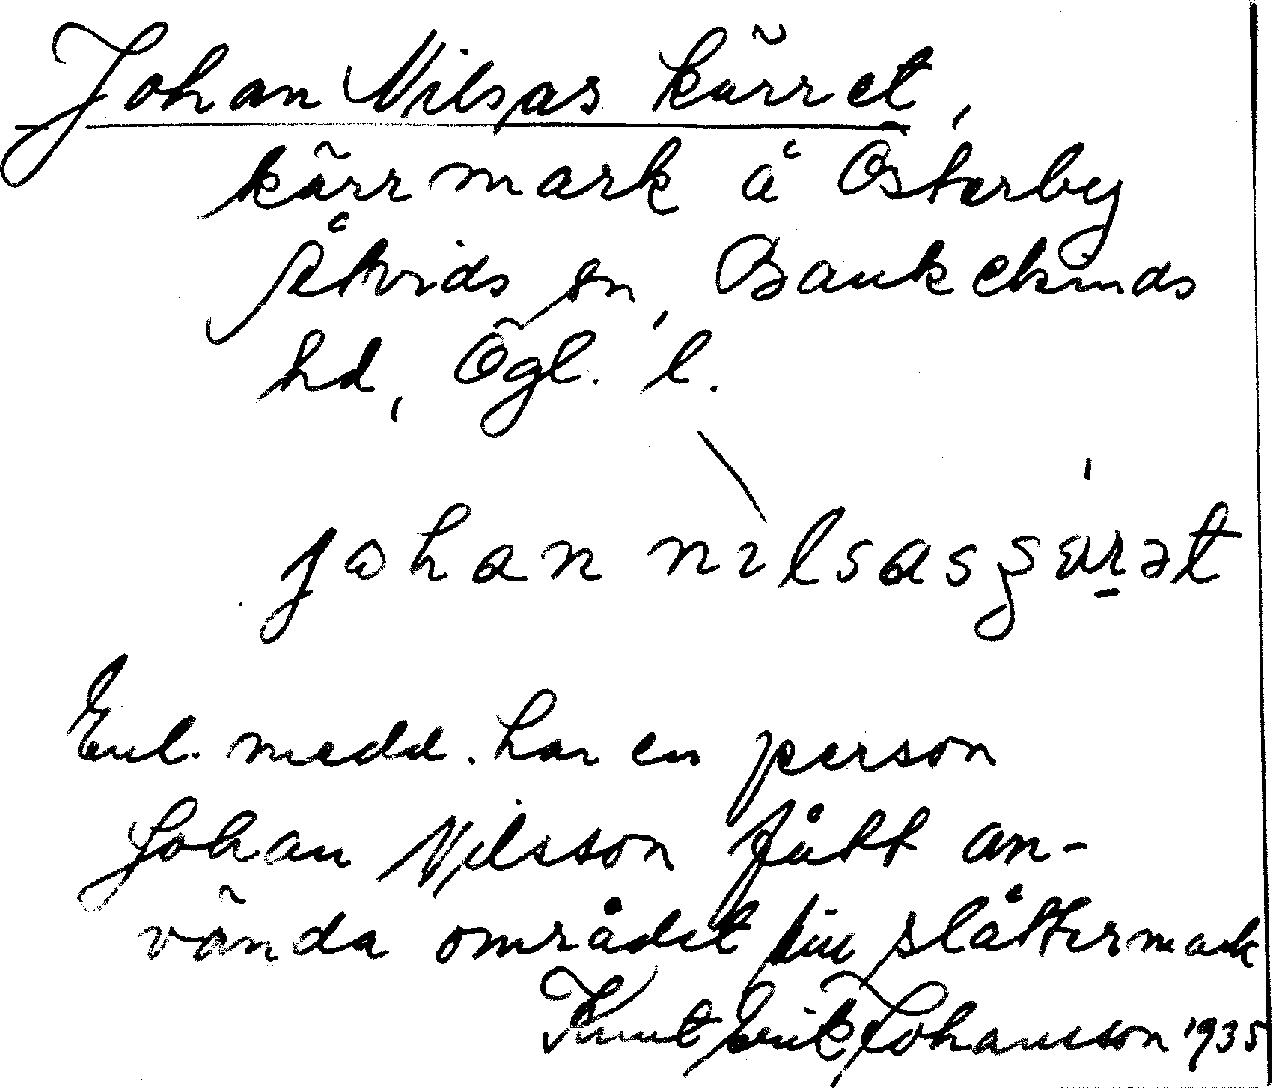 Johan Nilsas kärret,
kärrmark å Österby
Åtvids sn, Bankekinds
hd, Ögl. l.
johan nilsas
Enl. medd. har en person
Johan Nilsson fått an-
vända området till slåttermark
Knut Erik Johansson 1935